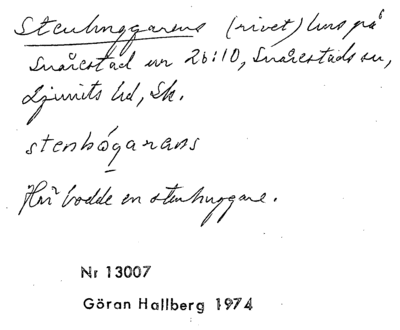 Stenhuggarens (rivet) hus på
Snårestad nr 26:10, Snårestads sn,
Ljunits hd, Sk.
stenhógarans
Här bodde en stenhuggare.
Nr 13007
Göran Hallberg 1974